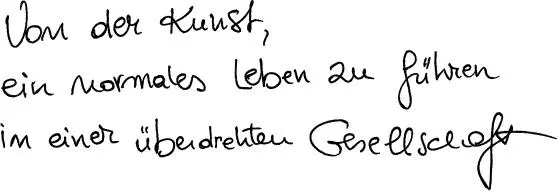 Von der Kunst,
ein normales Leben zu führen
in einer überdrehten Gesellschaft